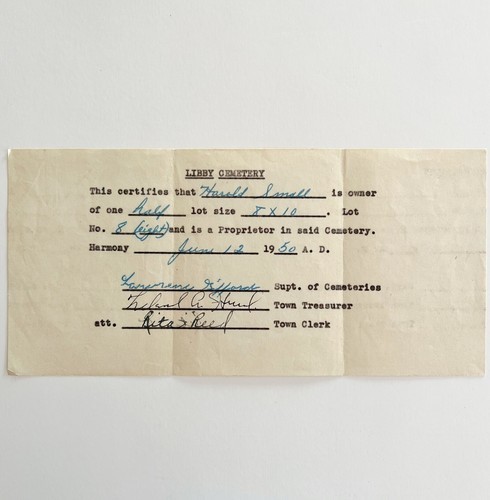 LIBBY CEMETERY
This certifies that Harold Small is owner
of one Half lot size 8 X 10. Lot
No. 8 (eight) and is a Proprietor in said Cemetery.
Harmony June 12 1950 A. D.
Lawrence Supt. of Cemeteries
A. Hurd Town Treasurer
att. Rita Reed Town Clerk